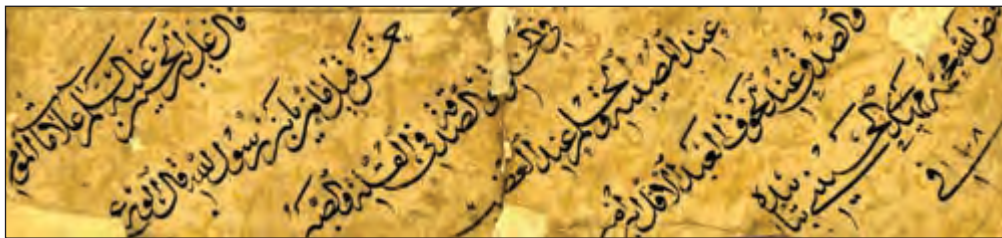 قال علي بن الحسين عليه السلام علامات المؤمن
خمس قيل وما هن يابن رسول الله قال الورع
في الخلوة والصدقة في القلة والصبر
عند المصيبة والحلم عند الغضب
والصدق عند الخوف العبد الاقل
الله محمد الحسيني
في